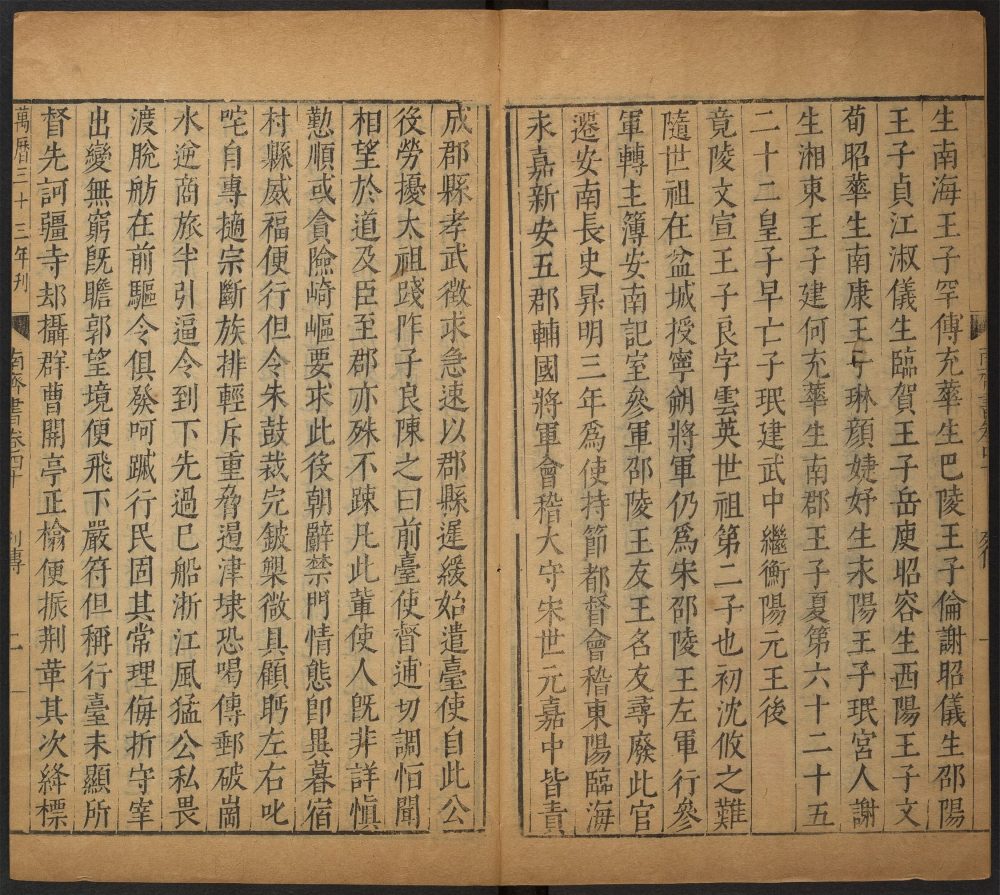 生南海王子罕傅充華生巴陵王子倫謝昭儀生邵陽
王子貞江淑儀生臨賀王子岳庾昭容生西陽王子文
荀昭華生南康王子琳顔婕妤生永陽王子珉宮人謝
生湘東王子建何充華生南郡王子夏第六十二十五
二十二皇子早亡子珉建武中繼衡陽元王後
竟陵文宣王子良字雲英世祖第二子也初沈攸之難
隨世祖在盆城授寧朔將軍仍爲宋邵陵王左軍行參
軍轉主簿安南記室參軍邵陵王友王名友尋廢此官
遷安南長史昇明三年爲使持節都督會稽東陽臨海
永嘉新安五郡輔國將軍會稽大守宋世元嘉中皆責
成郡縣孝武徵求急速以郡縣遲緩始遣臺使自此公
役勞擾太祖踐阼子良陳之曰前臺使督逋切調恒聞
相望於道及臣至郡亦殊不踈凡此輩使人旣非詳愼
懃順或貪險崎嶇要求此役朝辭禁門情態卽異暮宿
村縣威福便行但令朱鼓裁完鈹槊微具顧眄左右叱
咤自專擿宗斷族排輕斥重脅遏津埭恐喝傳郵破崗
水逆商旅半引逼令到下先過已船浙江風猛公私畏
渡脫舫在前驅令俱發呵蹴行民固其常理侮折守宰
出變無窮旣瞻郭望境便飛下嚴符但稱行臺未顯所
督先訶疆寺却攝群曹開亭正榻便振荆革其次絳標
萬曆三十三年刋
南齊書卷四十
列傳
二